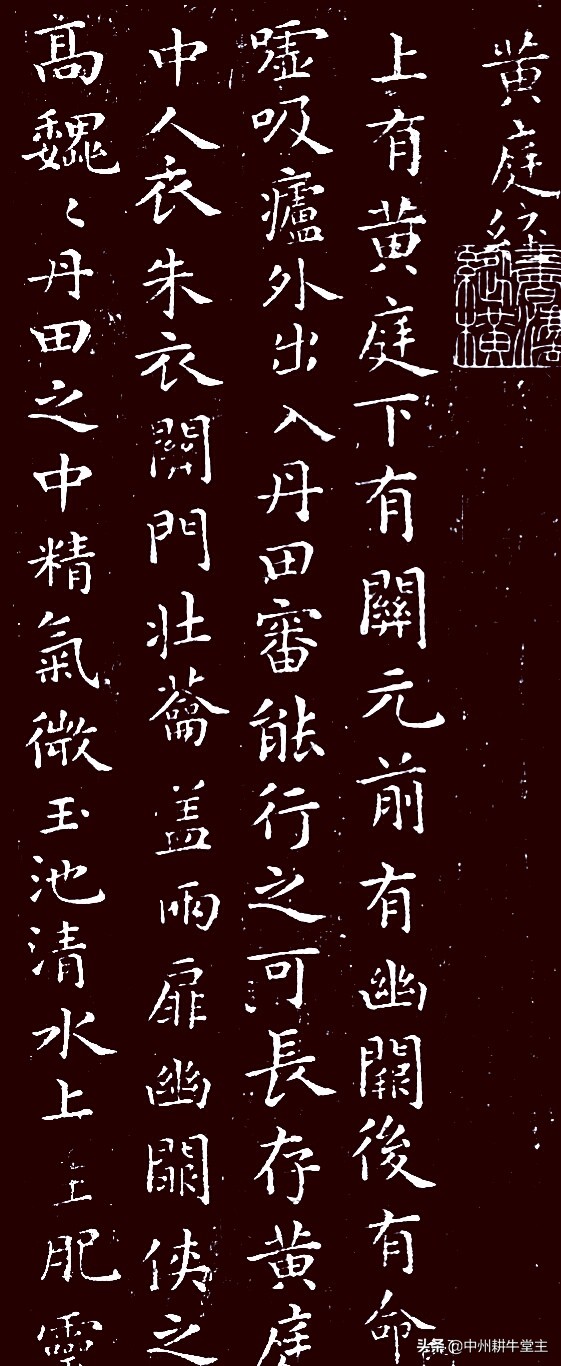 黄庭經
上有黄庭下有關元前有幽關後有命
嘘吸廬外出入丹田審能行之可長存黄庭
中人衣朱衣關門壯蘥盖兩扉幽關俠之
高巍〻丹田之中精氣微玉池清水上生肥靈
头条 @中州耕牛堂主